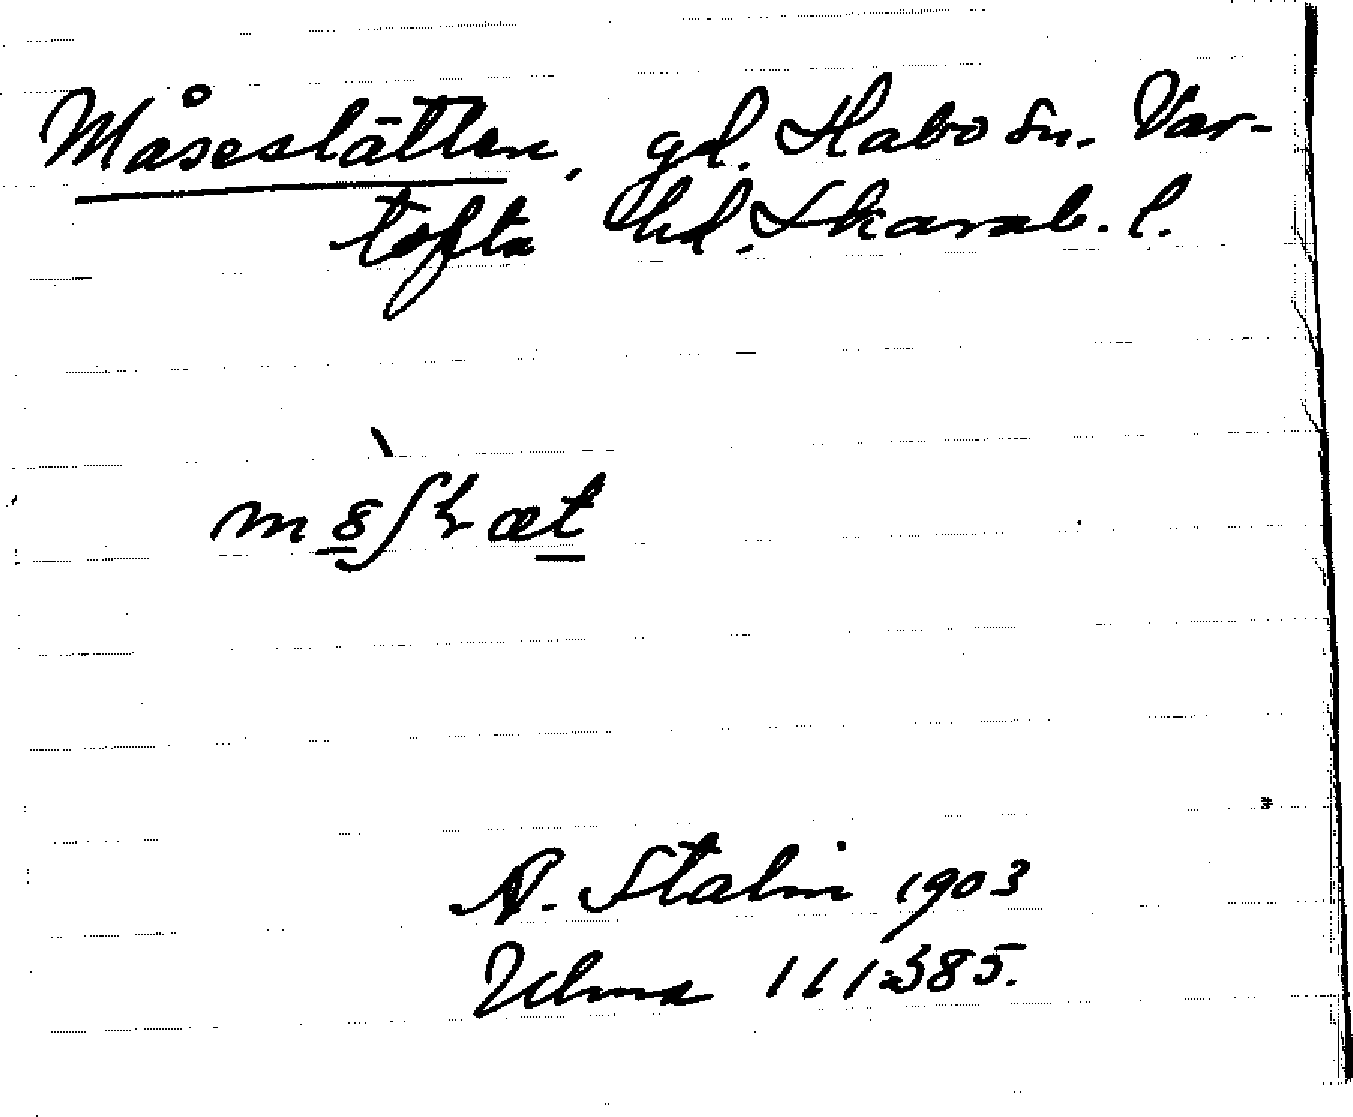 Måseslätten, gd. Habo sn. Var-
tofta hd. Skarab. l.
A. Stalin 1903
Ulma 111:385.